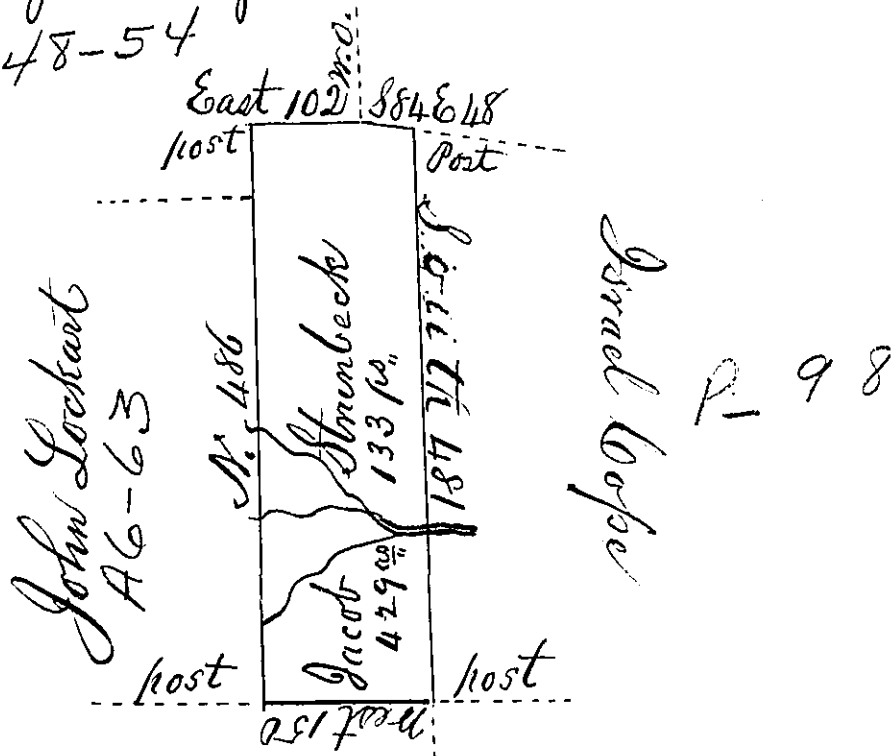 48-54
East 102
W.O.
S84E48
post
Post
John Lockart
A6-63
N. 486
Jacob Strunbeck
429 as. 133 ps.
South 481
Israel Cope
P- 98
post
post
West 150